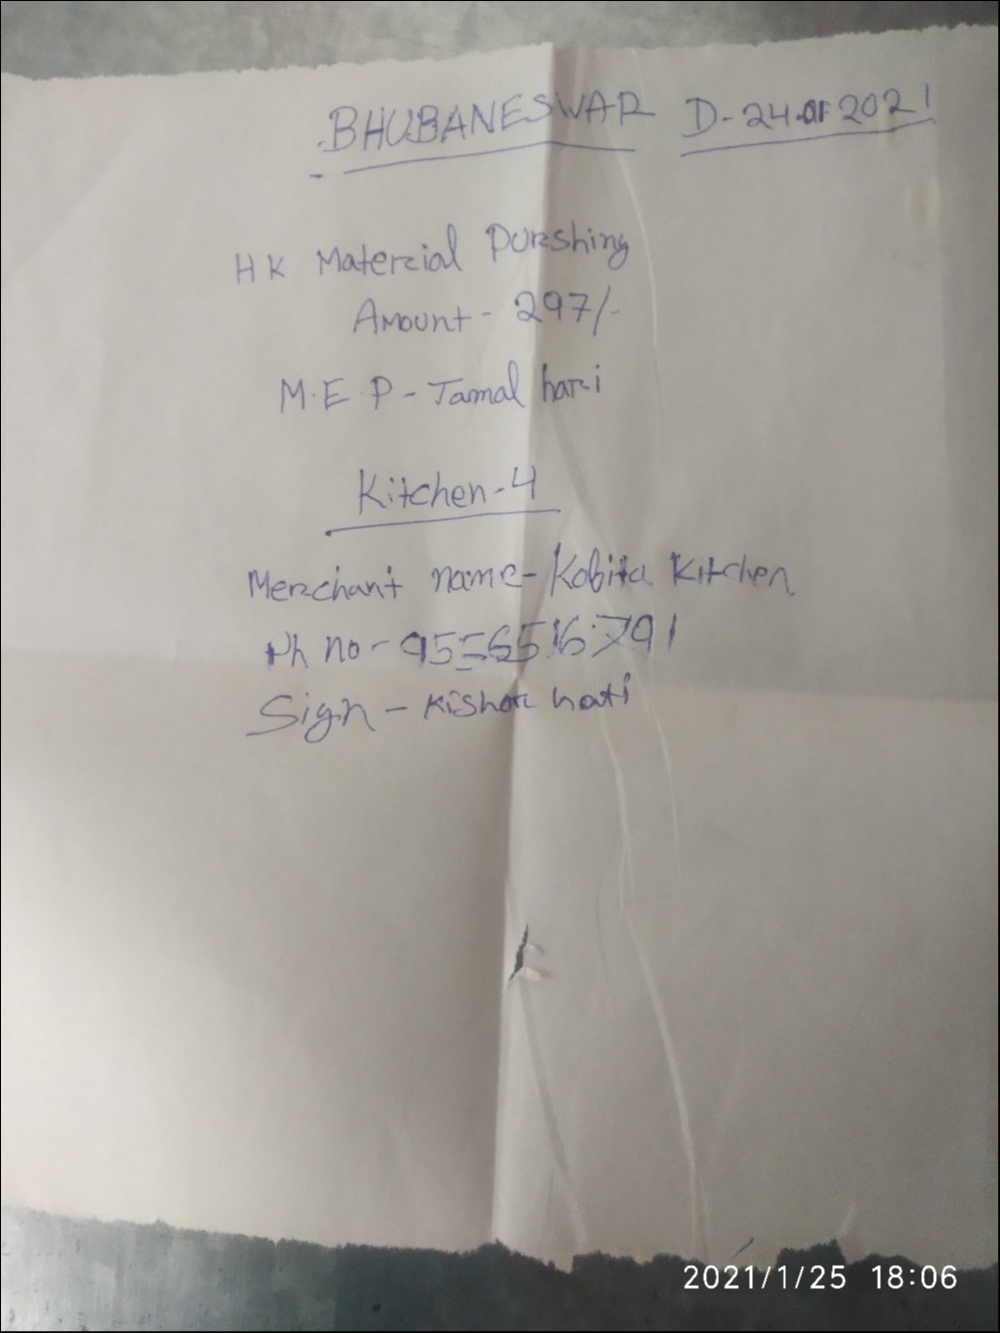 BHUBANESWAR D-24.01.2021
HK Material Purshing
Amount - 297/-
M.E.P - Tamal hari
Kitchen-4
Merchant name- Kobita Kitchen
Ph no - 9556516791
Sign - Kishor hati
2021/1/25 18:06